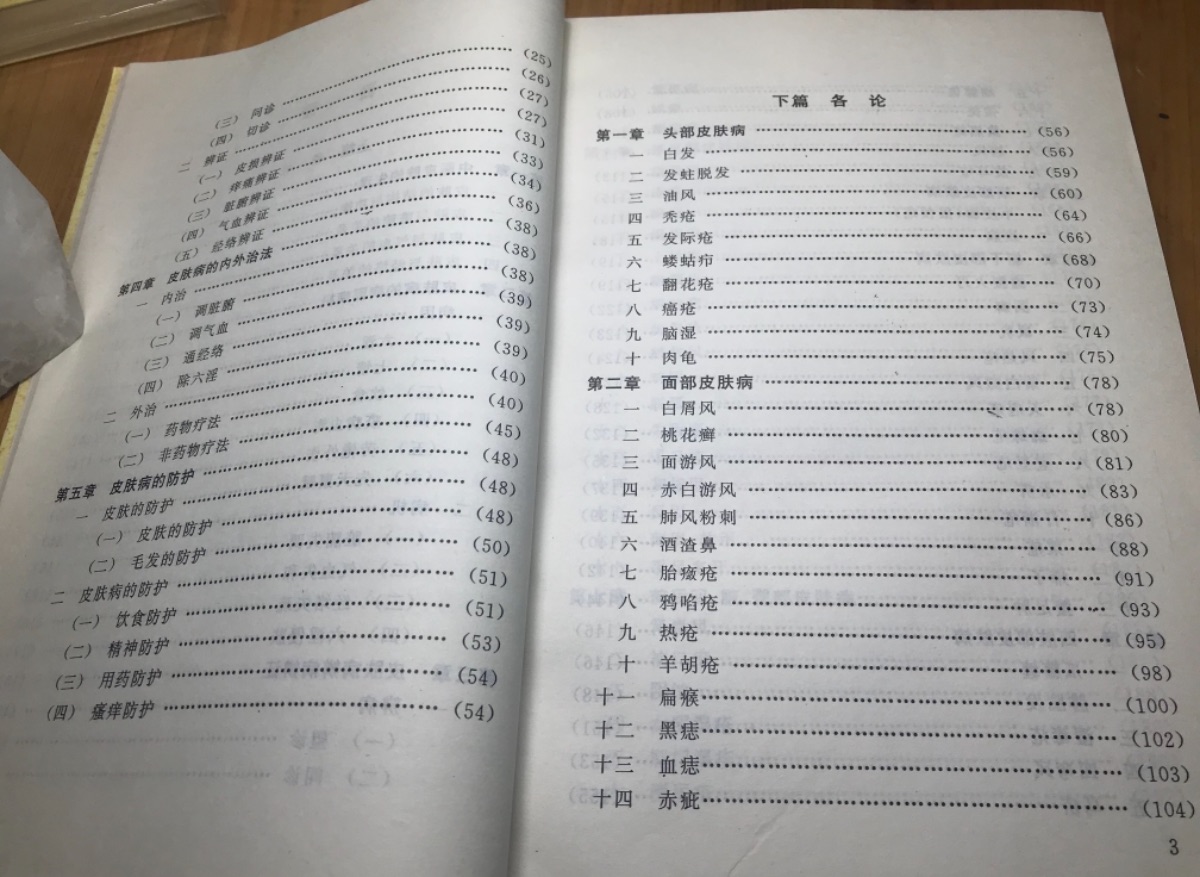 (三) 问诊 …… (25)
(四) 切诊 …… (26)
二 辨证 …… (27)
(一) 皮损辨证 …… (27)
(二) 痒痛辨证 …… (31)
(三) 脏腑辨证 …… (33)
(四) 气血辨证 …… (34)
(五) 经络辨证 …… (36)
第四章 皮肤病的内外治法 …… (38)
一 内治 …… (38)
(一) 调脏腑 …… (38)
(二) 调气血 …… (39)
(三) 通经络 …… (39)
(四) 除六淫 …… (39)
二 外治 …… (40)
(一) 药物疗法 …… (40)
(二) 非药物疗法 …… (45)
第五章 皮肤病的防护 …… (48)
一 皮肤的防护 …… (48)
(一) 皮肤的防护 …… (48)
(二) 毛发的防护 …… (50)
二 皮肤病的防护 …… (51)
(一) 饮食防护 …… (51)
(二) 精神防护 …… (53)
(三) 用药防护 …… (54)
(四) 瘙痒防护 …… (54)
下篇 各论
第一章 头部皮肤病 …… (56)
一 白发 …… (56)
二 发蛀脱发 …… (59)
三 油风 …… (60)
四 秃疮 …… (64)
五 发际疮 …… (66)
六 蝼蛄疖 …… (68)
七 翻花疮 …… (70)
八 癌疮 …… (73)
九 脑湿 …… (74)
十 肉龟 …… (75)
第二章 面部皮肤病 …… (78)
一 白屑风 …… (78)
二 桃花癣 …… (80)
三 面游风 …… (81)
四 赤白游风 …… (83)
五 肺风粉刺 …… (86)
六 酒渣鼻 …… (88)
七 …… (91)
八 鸦啗疮 …… (93)
九 热疮 …… (95)
十 羊胡疮 …… (98)
十一 扁瘊 …… (100)
十二 黑痣 …… (102)
十三 血痣 …… (103)
十四 赤疵 …… (104)
3